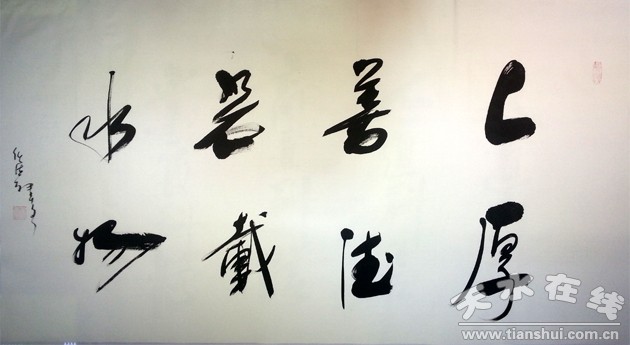 上善若水
厚德載物
天水在线
www.tianshui.com.cn